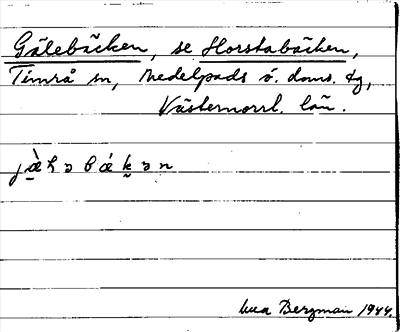 Gälebäcken, se Horstabäcken,
Timrå sn, Medelpads ö. doms. tg,
Västernorrl. län.
j æ̀ h ə b ǽ k ə n
Bergman 1944.